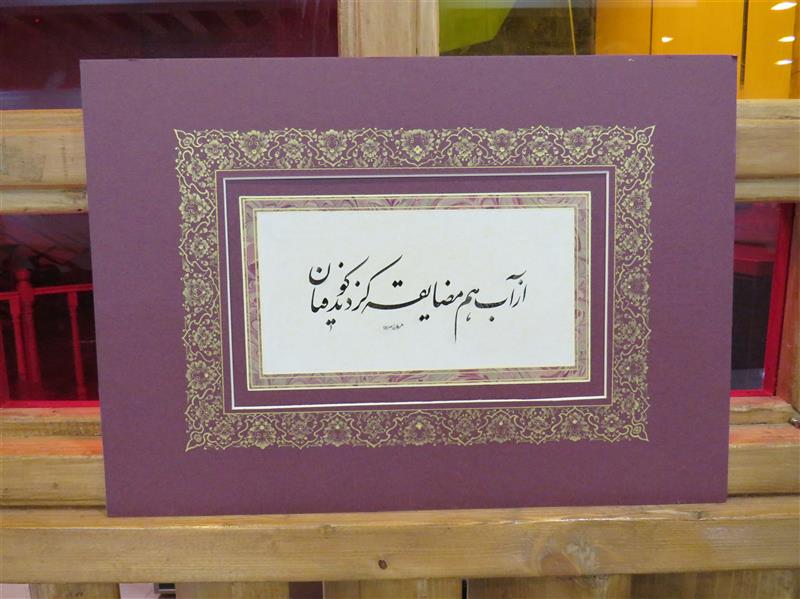 از آب هم مضایقه کردند کوفیان